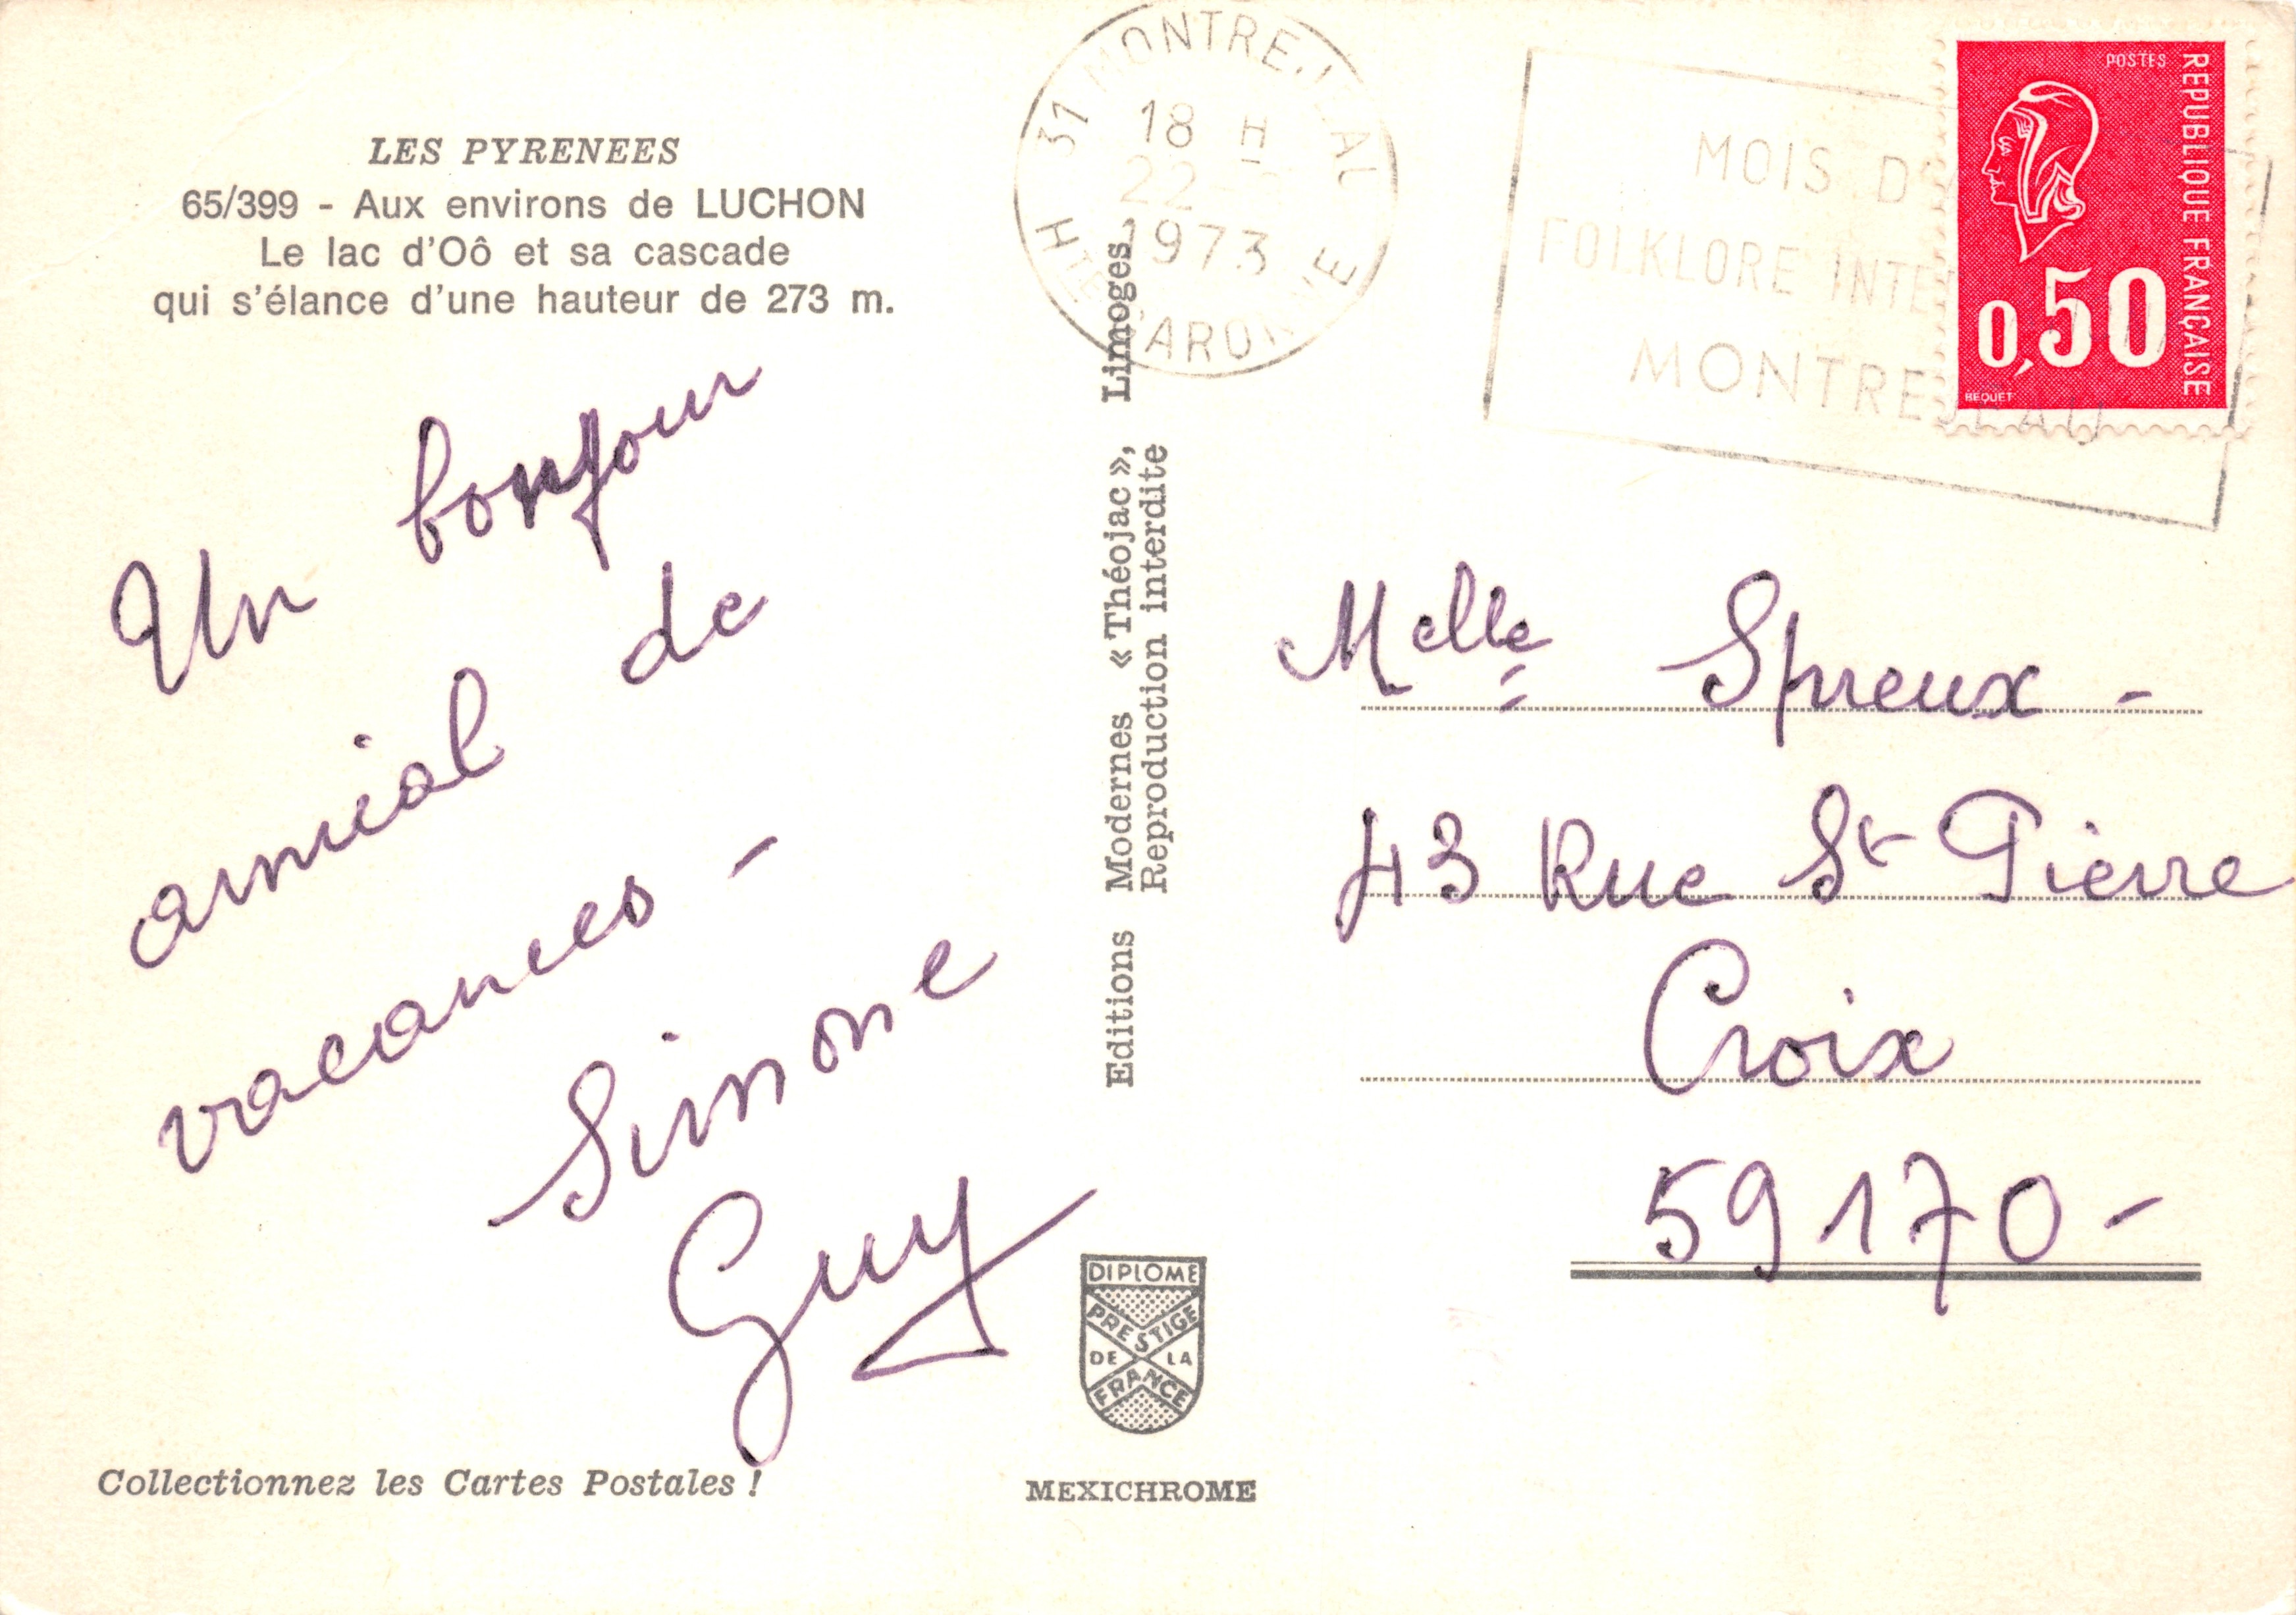 LES PYRENEES
65/399 - Aux environs de LUCHON
Le lac d'Oô et sa cascade
qui s'élance d'une hauteur de 273 m.
Un bonjour
amical de
vacances -
Simone
Guy
Collectionnez les Cartes Postales !
Editions Modernes « Théojac », Limoges
Reproduction interdite
DIPLOME
PRESTIGE
DE LA
FRANCE
MEXICHROME
31 MONTREJEAU
18 H
22
1973
HTE GARONNE
MOIS
FOLKLORE
MONTREJEAU
POSTES
REPUBLIQUE FRANÇAISE
0,50
BEQUET
Melle Spreux -
43 Rue St Pierre
Croix
59170 -